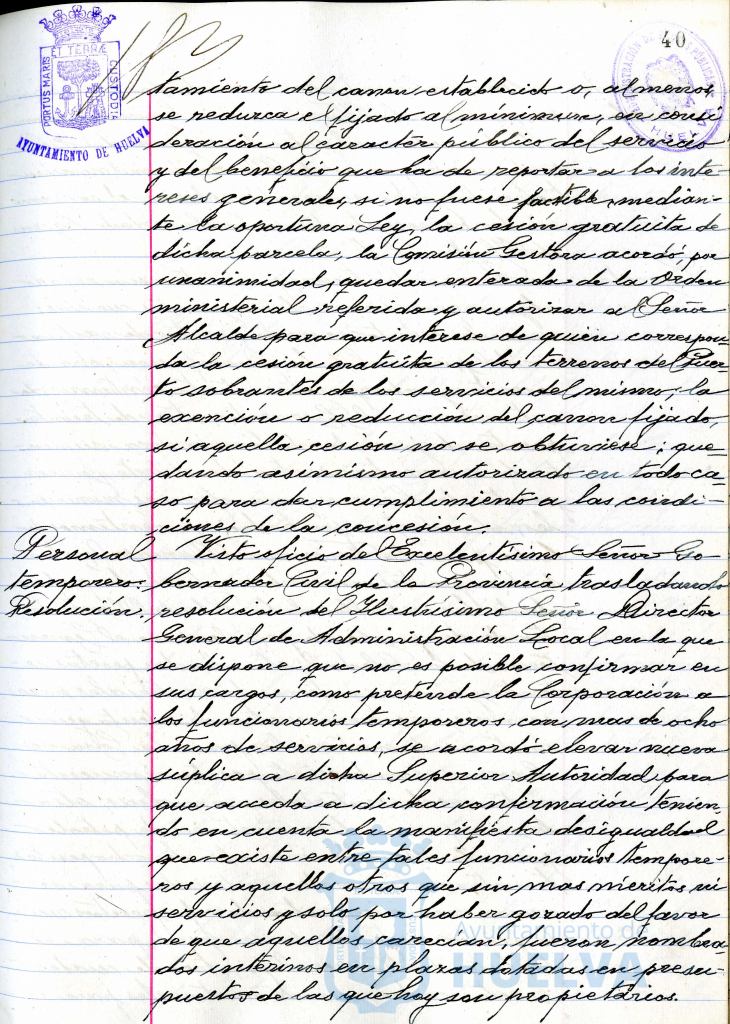 40
PORTUS MARIS ET TERRÆ CUSTODIA
AYUNTAMIENTO DE HUELVA
HUELVA
tamiento del canon establecido o, al menos,
se reduzca el fijado al minimum, en consi-
deración al caracter público del servicio
y del beneficio que ha de reportar a los inte-
reses generales, si no fuese factible, median-
te la oportuna Ley, la cesión gratuita de
dicha parcela, la Comisión Gestora acordó, por
unanimidad, quedar enterada de la Orden
ministerial referida y autorizar al Señor
Alcalde para que interese de quien correspon-
da la cesión gratuita de los terrenos del Puer-
to sobrantes de los servicios del mismo, la
exención o reducción del canon fijado,
si aquella cesión no se obtuviese; que-
dando asimismo autorizado en todo ca-
so para dar cumplimiento a las condi-
ciones de la concesión.
Personal
temporero.
Resolución.
Visto oficio del Excelentísimo Señor Go-
bernador Civil de la Provincia trasladando
resolución del Ilustrísimo Señor Director
General de Administración Local en la que
se dispone que no es posible confirmar en
sus cargos, como pretende la Corporación a
los funcionarios temporeros con mas de ocho
años de servicios, se acordó elevar nueva
súplica a dicha Superior Autoridad para
que acceda a dicha confirmación tenien-
do en cuenta la manifiesta desigualdad
que existe entre tales funcionarios tempore-
ros y aquellos otros que sin mas méritos ni
servicios y solo por haber gozado del favor
de que aquellos carecían, fueron nombra-
dos interinos en plazas dotadas en presu-
puestos de las que hoy son propietarios.
Ayuntamiento de
HUELVA